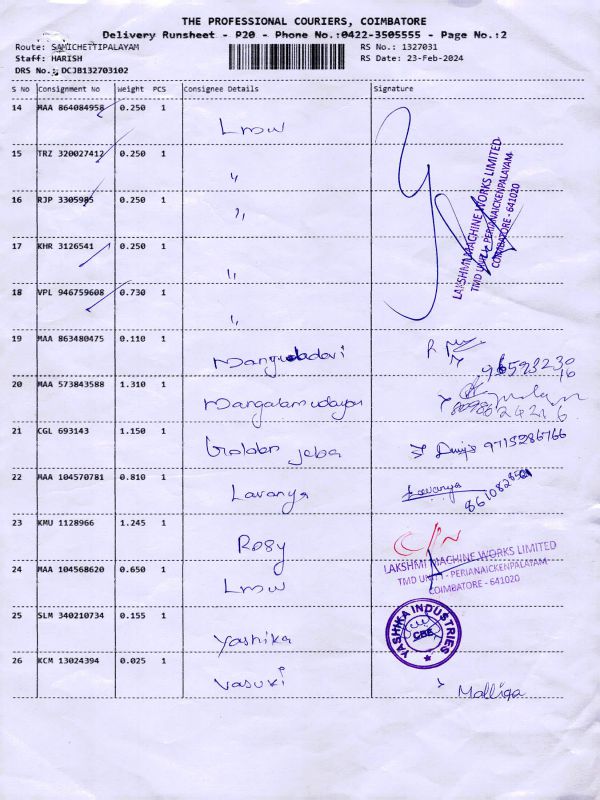 THE PROFESSIONAL COURIERS, COIMBATORE
Delivery Runsheet - P20 - Phone No.:0422-3505555 - Page No.:2
Route: SAMICHETTIPALAYAM RS No.: 1327031
Staff: HARISH RS Date: 23-Feb-2024
DRS No.: DCJB132703102
S No Consignment No Weight PCS Consignee Details Signature
14 MAA 864084958 0.250 1 Lmw
15 TRZ 320027412 0.250 1 "
16 RJP 3305985 0.250 1 "
17 KHR 3126541 0.250 1 "
18 VPL 946759608 0.730 1 "
LAKSHMI MACHINE WORKS LIMITED
TMD UNIT - PERIANAICKENPALAYAM
COIMBATORE - 641020
19 MAA 863480475 0.110 1
20 MAA 573843588 1.310 1 Mangalam udayar
21 CGL 693143 1.150 1 Golden Jeba 9715286766
22 MAA 104570781 0.810 1 Lavanya Lavanya
23 KMU 1128966 1.245 1 Rosy
24 MAA 104568620 0.650 1 Lmw
LAKSHMI MACHINE WORKS LIMITED
TMD UNIT - PERIANAICKENPALAYAM
COIMBATORE - 641020
25 SLM 340210734 0.155 1 Yashika YASHIKA INDUSTRIES CBE
26 KCM 13024394 0.025 1 Vasuki Malliga